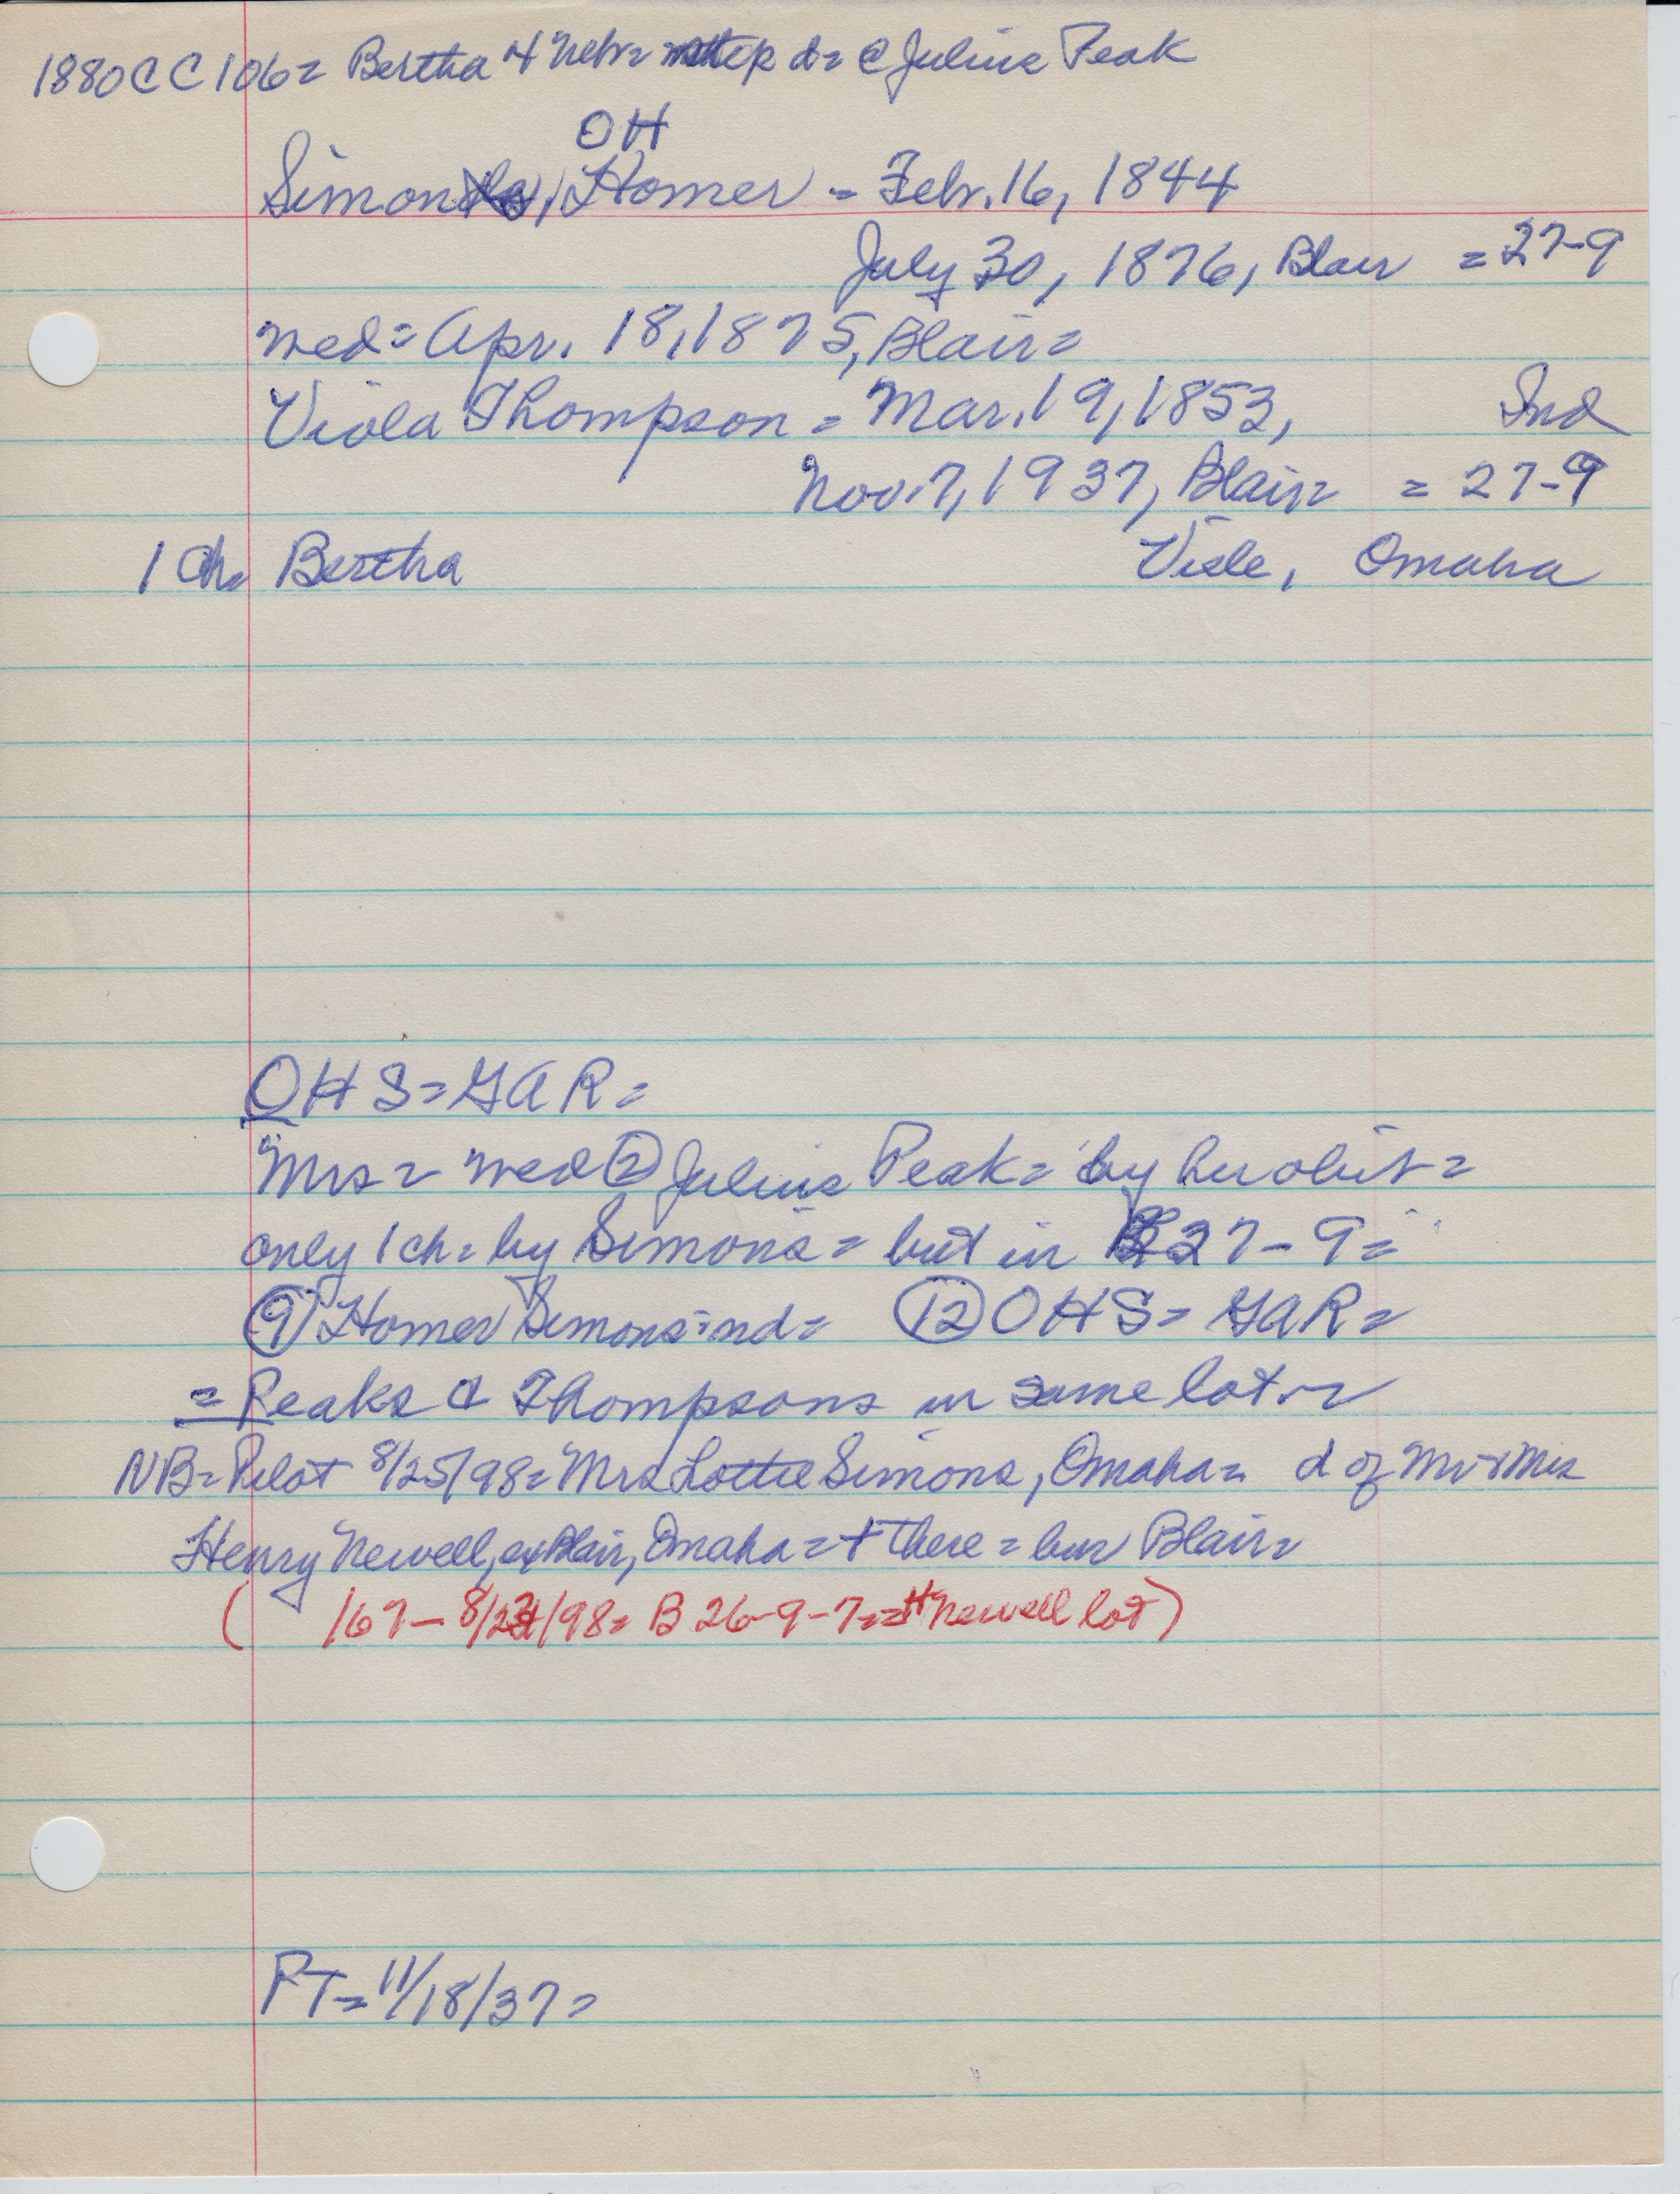 1880CC106= Bertha 4 Nebr= step d= @ Julius Peak
OH
Simons, Homer = Febr. 16, 1844
July 30, 1876, Blair = 27-9
wed= Apr. 18, 1875, Blair=
Viola Thompson = Mar. 19, 1853, Ind
Nov. 7, 1937, Blair= = 27-9
1 ch= Bertha Viele, Omaha
OHS= GAR=
Mrs= wed ② Julius Peak= by her obit=
only 1 ch= by Simons= but in 27-9=
⑨ Homer Simons=nd= ⑫ OHS= GAR=
= Peaks & Thompsons in same lot=
NB= Pilot 8/25/98= Mrs Lottie Simons, Omaha= d of Mr & Mrs
Henry Newell, ex Blair, Omaha= + there= bur Blair=
( 167- 8/24/98= B 26-9-7== H Newell lot)
PT= 11/18/37=